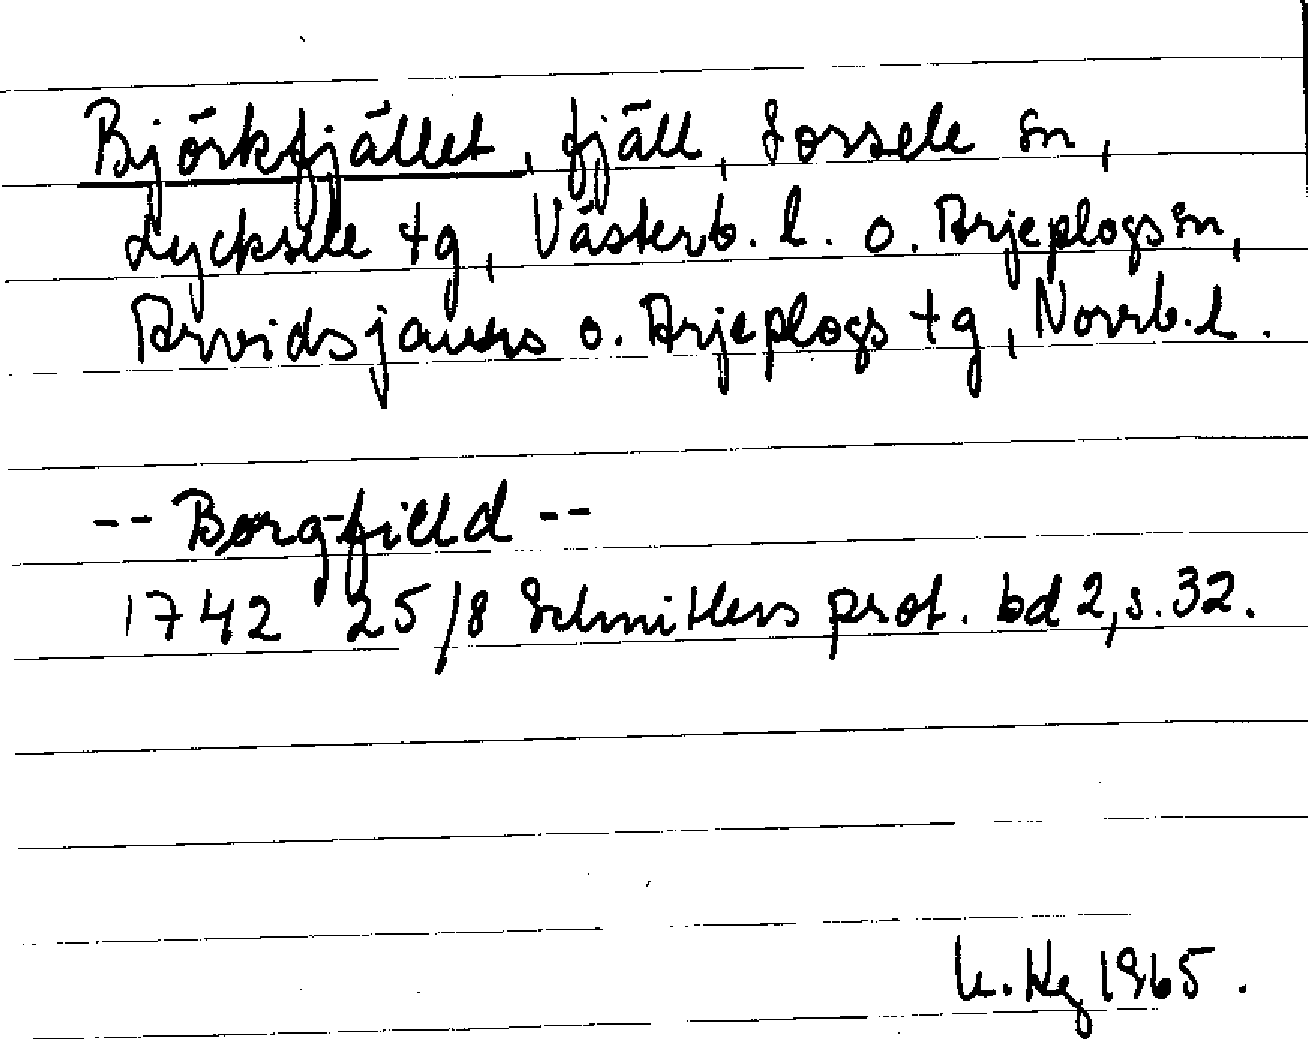 Björkfjället, fjäll, Sorsele sn,
Lycksele tg, Västerb. l. o. Arjeplogs sn,
Arvidsjaurs o. Arjeplogs tg, Norrb. l.
-- Børgfield --
1742 25/8 Schnitlers prot. bd 2, s. 32.
1965.